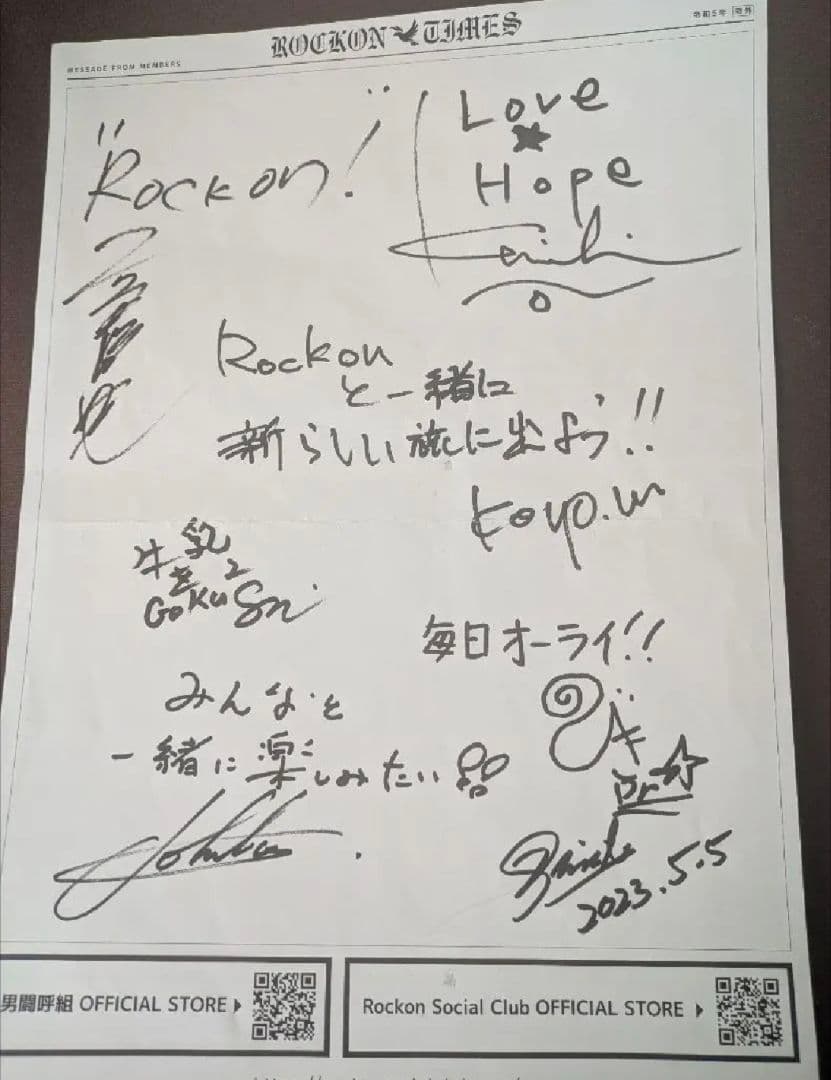 ROCKON TIMES
MESSAGE FROM MEMBERS
令和5年 号外
"Rockon"!
Love
★
Hope
Rockon
と一緒に
新らしい旅に出よう!!
Koyo.
牛乳
を
Goku2
毎日オーライ!!
みんなと
一緒に楽しみたい
Dr
2023.5.5
男闘呼組 OFFICIAL STORE
Rockon Social Club OFFICIAL STORE